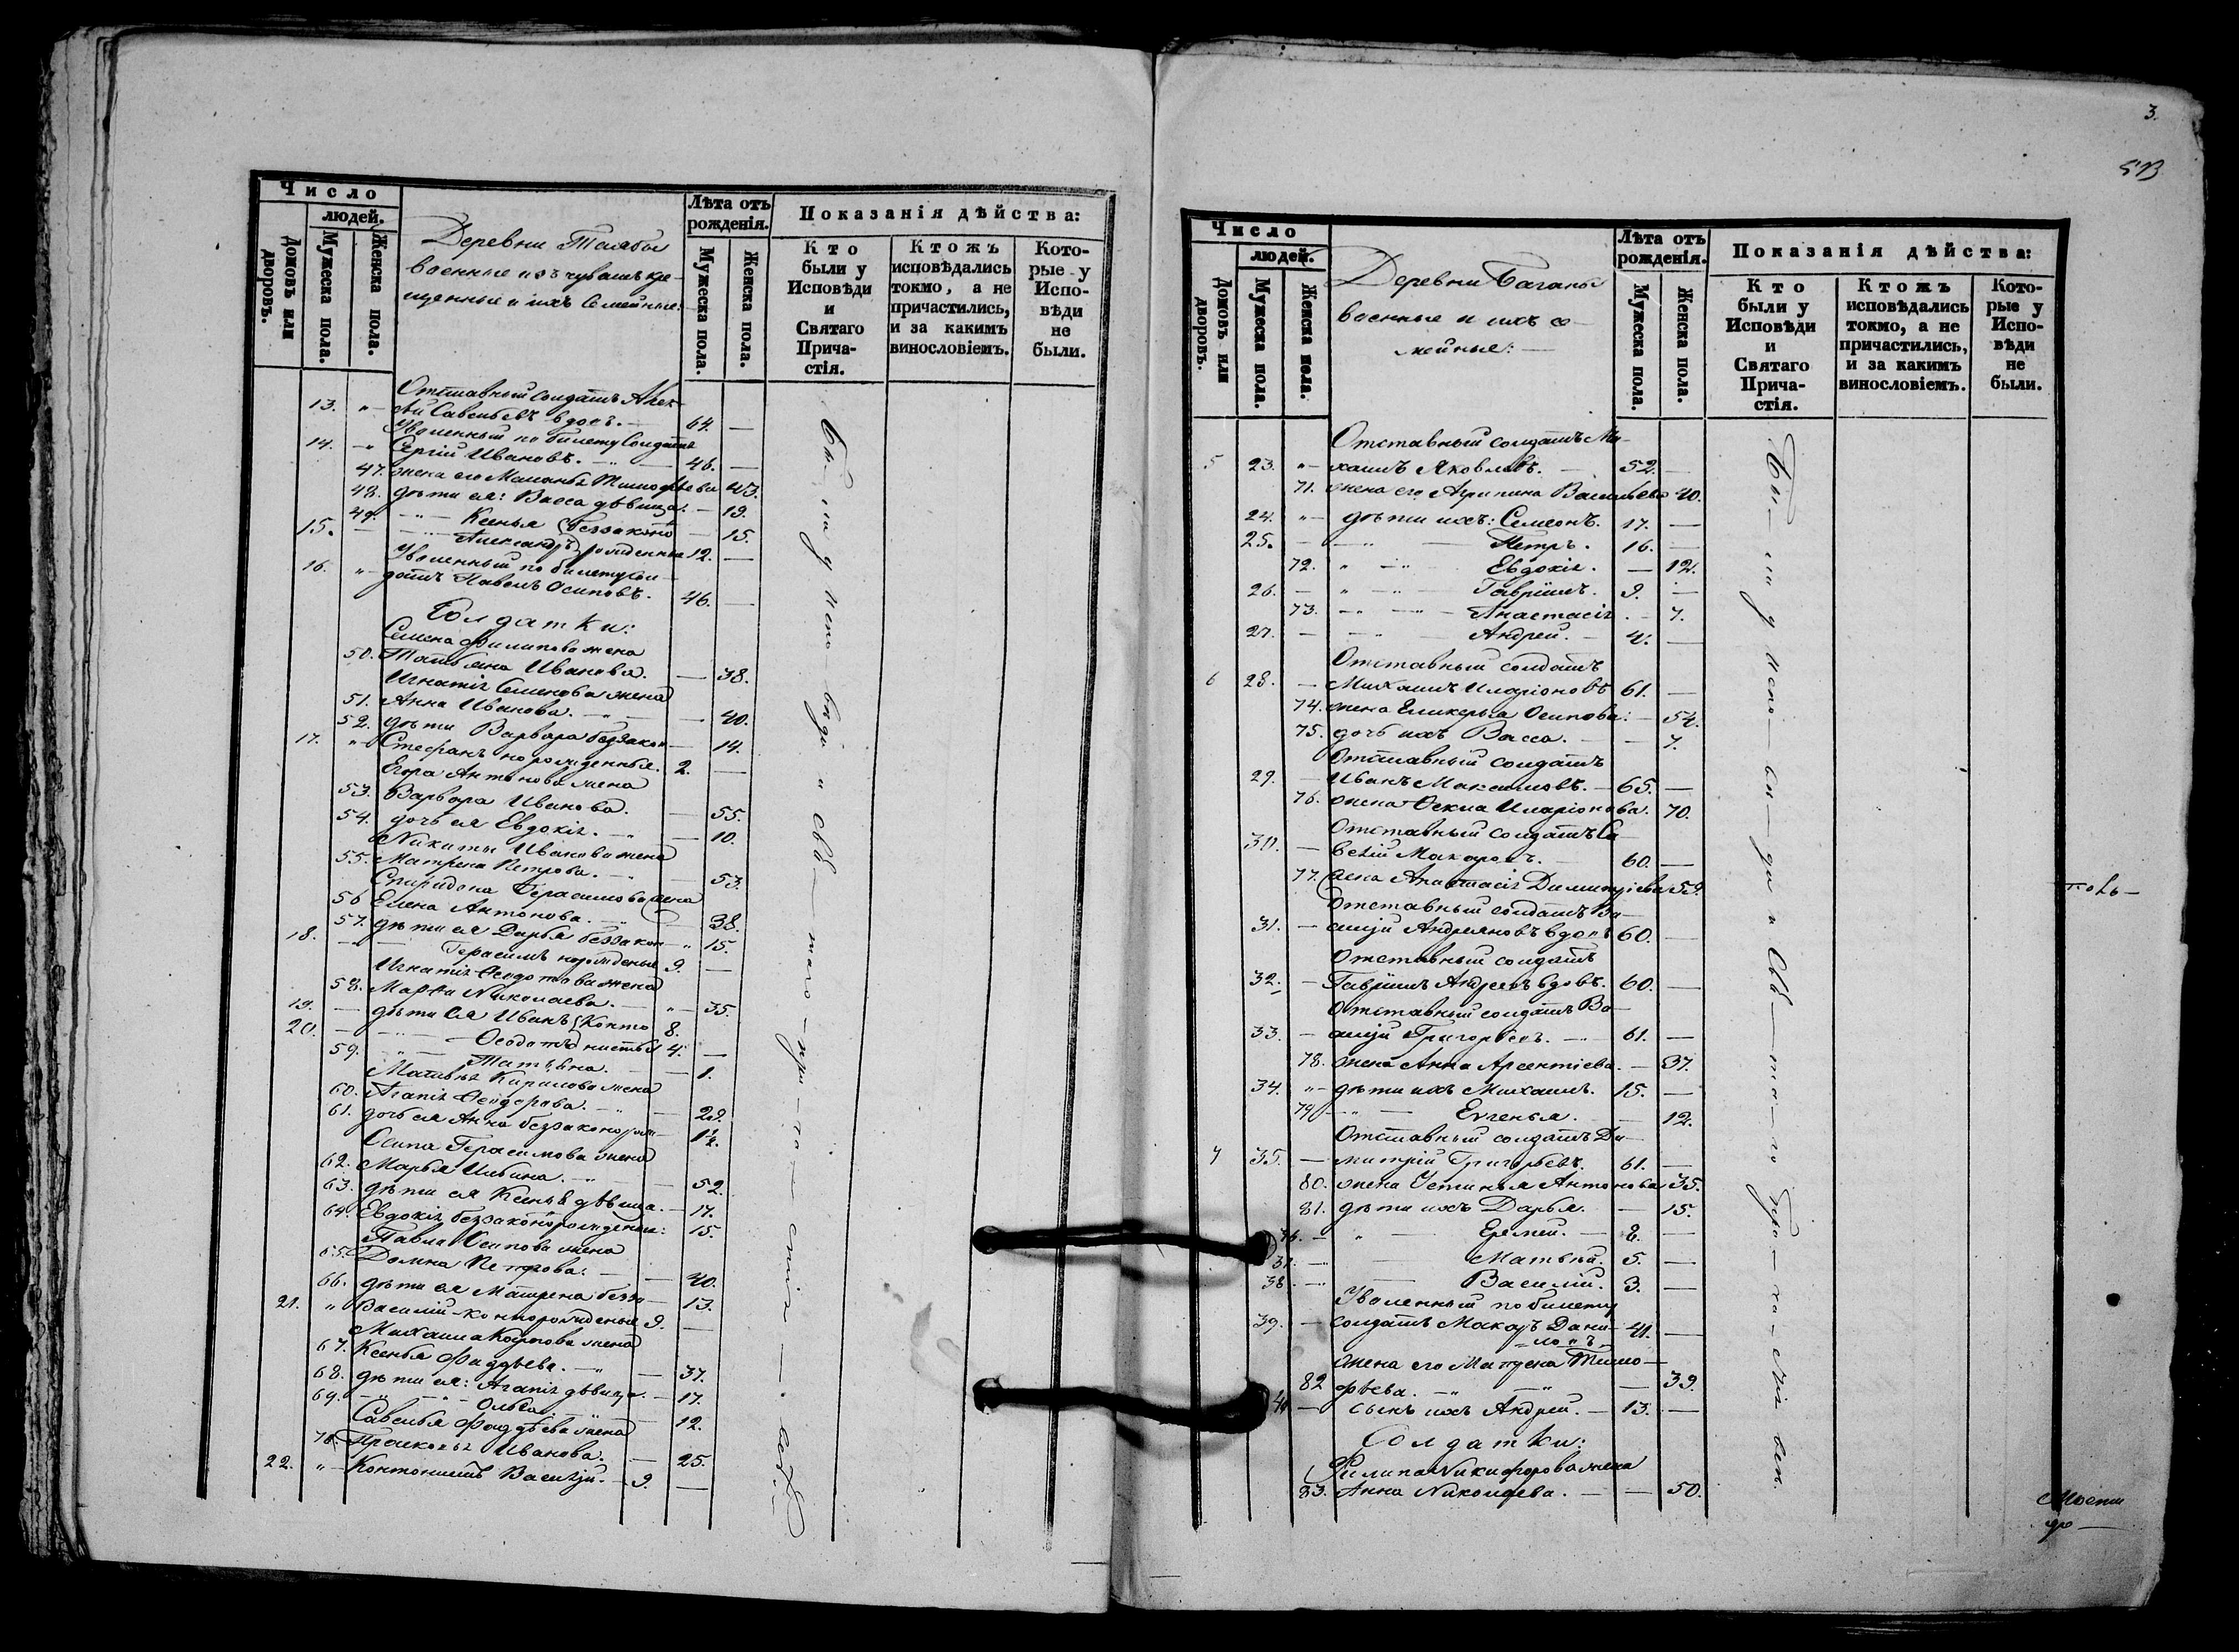 Число
людей.
Домовъ или дворовъ.
Мужеска пола.
Женска пола.
Деревни
военные изъ чувашъ кре-
щенные и ихъ Семейные:
Лѣта отъ рожденія.
Мужеска пола.
Женска пола.
Показанія дѣйства:
Кто были у Исповѣди и Святаго Прича-стія.
Ктожъ исповѣдались токмо, а не причастились, и за какимъ винословіемъ.
Кото-рые у Испо-вѣди не были.
Отставный солдатъ Алек-
13. „ сѣй Савельевъ вдовъ. — 64. —
Уволенный по билету Солдатъ
14. „ Сергій Ивановъ. — 46. —
47. жена его Меланья Тимофѣева 43.
48. дѣти ея: Васса дѣвица. — 19.
49. „ — Ксенья (беззаконо — 15.
15. — „ Александръ рожденные 12. —
Уволенный по билету сол-
16. „ датъ Павелъ Осиповъ. 46. —
Солдатки:
Семена Филипова жена
50. Татьяна Иванова. — 38.
Игнатія Семенова жена
51. Анна Иванова. — „ — 40.
52. дѣти Варвара беззакон — 14.
17. „ Стефанъ норожденные. 2. —
Егора Антонова жена
53. Варвара Иванова. — 55.
54. дочь ея Евдокія. — „ — 10.
Никиты Иванова жена
55. Матрена Петрова. — „ — 53.
Спиридона Герасимова жена
56 Елена Антонова. — 38.
57. дѣти ея Дарья беззакон — „ 15.
18. — „ — Герасимъ норожденные 9. —
Игнатія Ѳедотова жена
58. Марѳа Николаева. — „ 35.
19. — дѣти ея Иванъ (Канто 8.
20. — „ — Ѳеодотъ нисты 4. —
59. „ — Татьяна. — 1.
Матвѣя Кирилова жена
60. Агапія Ѳеодорова. — „ — 29.
61. дочь ея Анна беззаконорож— 1½.
Осипа Герасимова жена
62. Марья Ильина. — „ — 52.
63. дѣти ея Ксенья дѣвица. — 17.
64. Евдокія беззаконорожденные: 15.
Павла Осипова жена
65. Домна Петрова. — 40.
66. дѣти ея Матрена безза— 13.
21. „ Василій—коннорожденные 9. —
Михаила Карпова жена
67. Ксенья Фаддѣева. — „ — 37.
68. дѣти ея: Агапія дѣвица. — 17.
69. — „ — Ольга — 12.
Савелья Фаддѣева жена
70. Прасковья Иванова. — 25.
22. „ Кантонистъ Василій. — 9. —
Бы-ли у испо-вѣди и Св-таго-при-ча-стія-.
3.
Число
людей.
Домовъ или дворовъ.
Мужеска пола.
Женска пола.
Деревни
военные и ихъ се-
мейные: —
Лѣта отъ рожденія.
Мужеска пола.
Женска пола.
Показанія дѣйства:
Кто были у Исповѣди и Святаго Прича-стія.
Ктожъ исповѣдались токмо, а не причастились, и за какимъ винословіемъ.
Кото-рые у Испо-вѣди не были.
Отставный солдатъ Ми-
5 23. „ хаилъ Яковлевъ. — 52. —
71. жена его Агрипина Васильева 40.
24. „ дѣти ихъ: Семеонъ. 17. —
25. — „ — Петръ. 16. —
72. „ — „ Евдокія. — 12.
26. — „ — „ — Гавріилъ. 9. —
73. — „ — „ — Анастасія. — 7.
27. — — „ — Андрей. — 4. —
Отставный солдатъ
6 28. — Михаилъ Иларіоновъ 61. —
74. жена Гликерья Осипова: — 54.
75. дочь ихъ Васса. — — 7.
Отставный солдатъ
29. — Иванъ Максимовъ. — 65. —
76. жена Ѳекла Иларіонова. 70.
Отставный солдатъ Са-
30. — велій Макаровъ. — 60. —
77. жена Анастасія Димитріева 59.
Отставный солдатъ Ва-
31. — силій Андреяновъ вдовъ 60. —
Отставный солдатъ
32. — Гавріилъ Андреевъ вдовъ. 60. —
Отставный солдатъ Ва-
33. — силій Григорьевъ. — 61. —
78. жена Анна Арсентіева. — 37.
34. „ дѣти ихъ Михаилъ. 15. —
79 — „ — Евгенья. — 12.
Отставный солдатъ Ди-
7 35. — митрій Григорьевъ. 61. —
80. жена Устинья Антонова 35.
81. дѣти ихъ Дарья. — 15.
36. — „ — Еремей. — 8. —
37. — „ — Матвѣй. 5. —
38. — „ — Василій. 3. —
Уволенный по билету
39. — солдатъ Макаръ Дани- 41. —
ловъ
жена его Матрена Тимо—
82 фѣева. — „ — „ — 39.
40 — сынъ ихъ Андрей. — 13. —
Солдатки:
Филипа Никифорова жена
83. Анна Николаева. — — 50.
Бы-ли у испо-вѣ-ди и Св-та-го